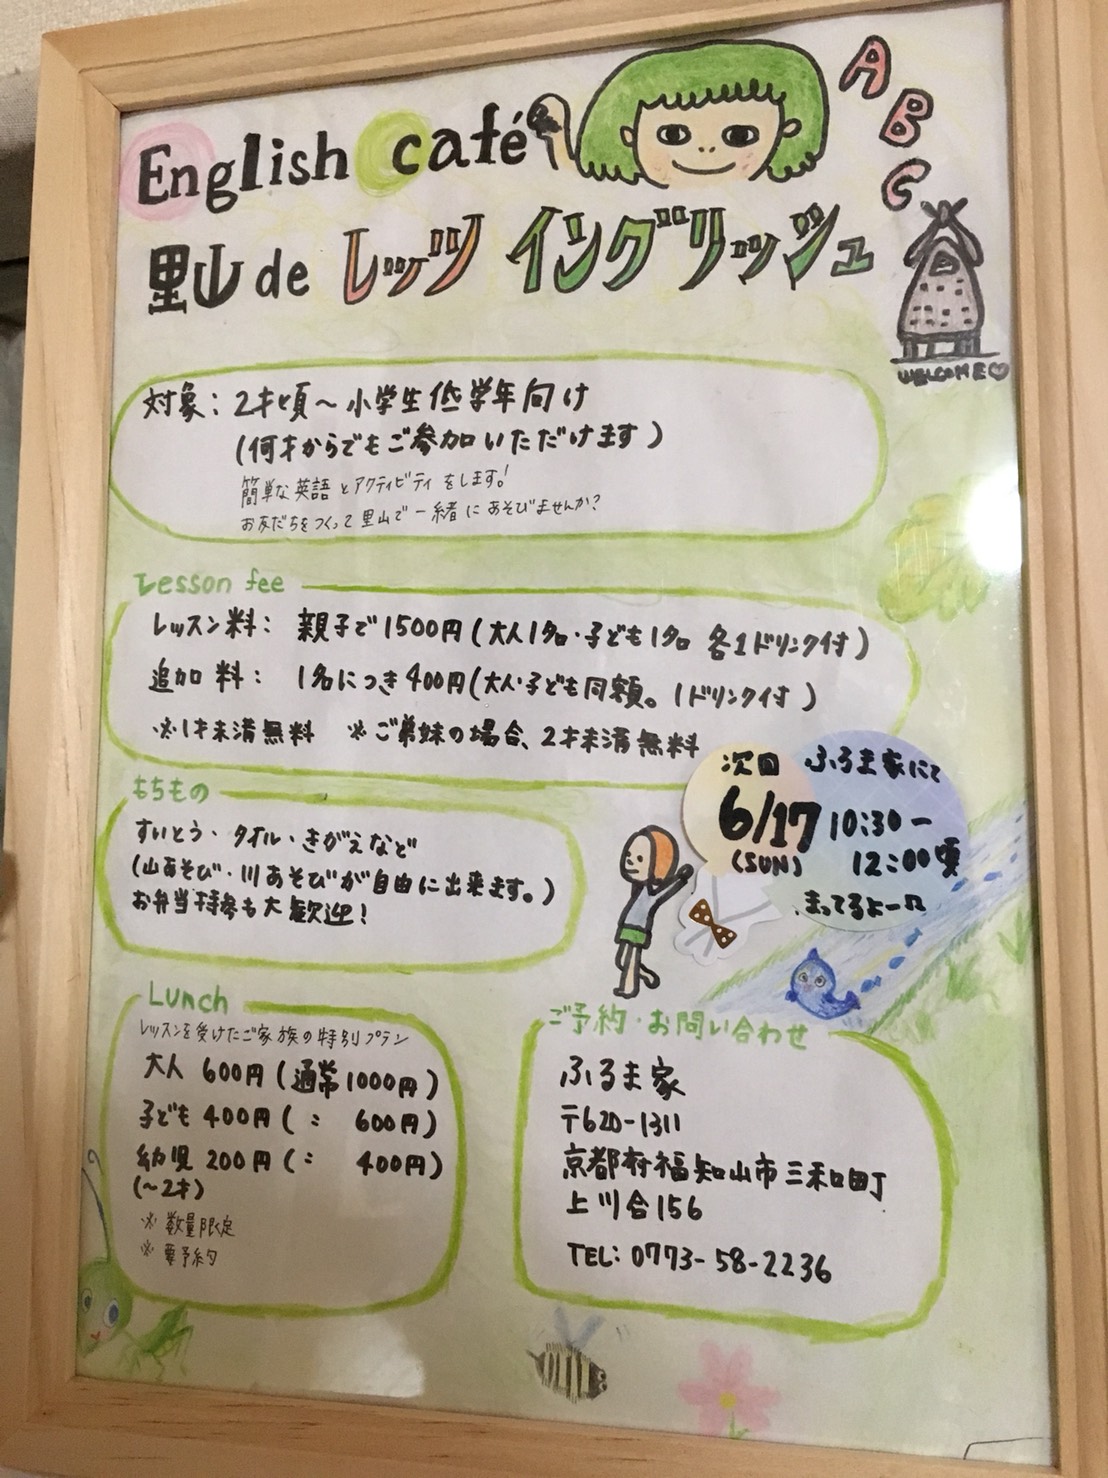 English café
ABC
里山 de レッツ イングリッシュ
WELCOME♡
対象：2才頃〜小学生低学年向け
(何才からでもご参加いただけます)
簡単な英語とアクティビティをします！
お友だちをつくって里山で一緒にあそびませんか？
Lesson fee
レッスン料： 親子で1500円(大人1名・子ども1名 各1ドリンク付)
追加料： 1名につき400円(大人・子ども同額。1ドリンク付)
※1才未満無料 ※ご弟妹の場合、2才未満無料
次回 ふるま家にて
6/17 10:30ー
(SUN) 12:00頃
まってるよーn
もちもの
すいとう・タオル・きがえなど
(山あそび・川あそびが自由に出来ます。)
お弁当持参も大歓迎！
Lunch
レッスンを受けたご家族の特別プラン
大人 600円(通常1000円)
子ども 400円(： 600円)
幼児 200円(： 400円)
(〜2才)
※数量限定
※要予約
ご予約・お問い合わせ
ふるま家
〒620-1311
京都府福知山市三和町
上川合156
TEL：0773-58-2236